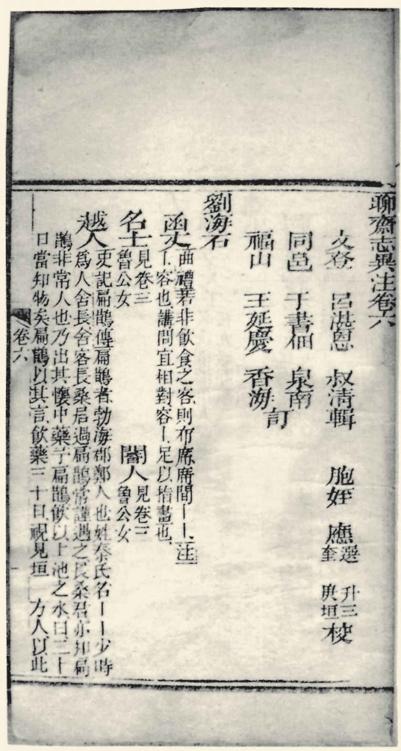 聊齋志異注卷六
文登 呂湛恩 叔清輯 胞姪 應 選 升三
奎 垣 校
同邑 于書佃 泉南
訂
福山 王延慶 香海
劉海石
函丈 曲禮若非飲食之客則布席席間丨丨注
丨容也講問宜相對容丨足以指畫也
名士 見卷三
魯公女
閽人 見卷三
魯公女
越人 史記扁鵲傳扁鵲者勃海郡鄭人也姓秦氏名丨丨少時
為人舍長舍客長桑君過扁鵲常謹遇之長桑君亦知扁
鵲非常人也乃出其懷中藥予扁鵲飲以上池之水曰三十
日當知物矣扁鵲以其言飲藥三十日視見垣 方人以此
卷六